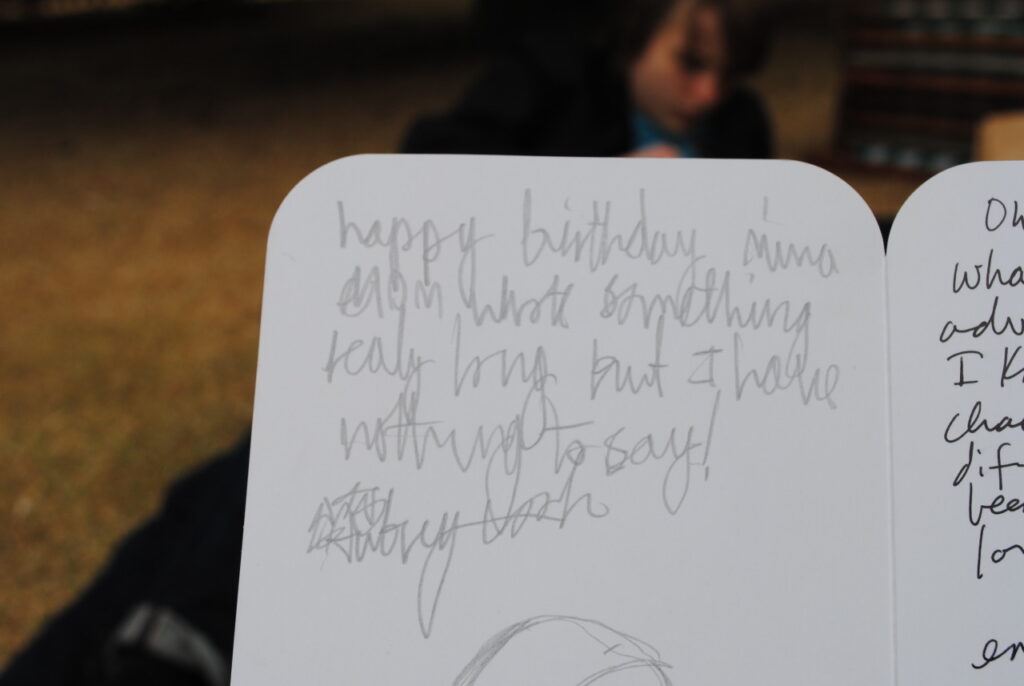 happy birthday nina
something
realy long but I have
nothing to say!
Josh
Oh
wha
adv
I K
chan
dif
bee
lo
en